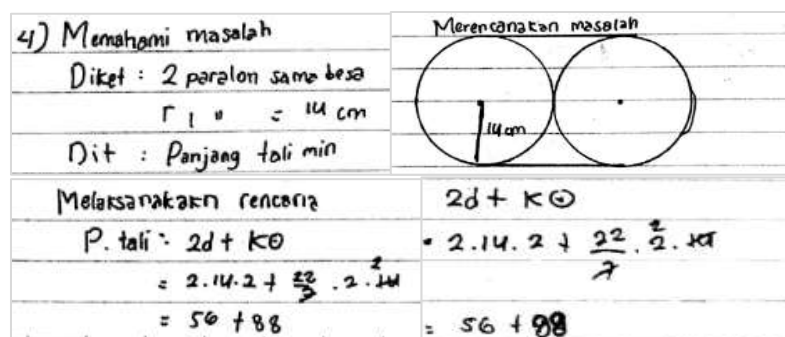 4) Memahami masalah
Diket : 2 paralon sama besa
r 1 " = 14 cm
Dit : Panjang tali min
Merencanakan masalah
14 cm
Melaksanakakn rencana
P. tali : 2d + K⊙
= 2.14.2 + 22/7 .2.14 2
= 56 + 88
2d + K⊙
• 2.14.2 + 22/7 . 2. 14 2
= 56 + 88